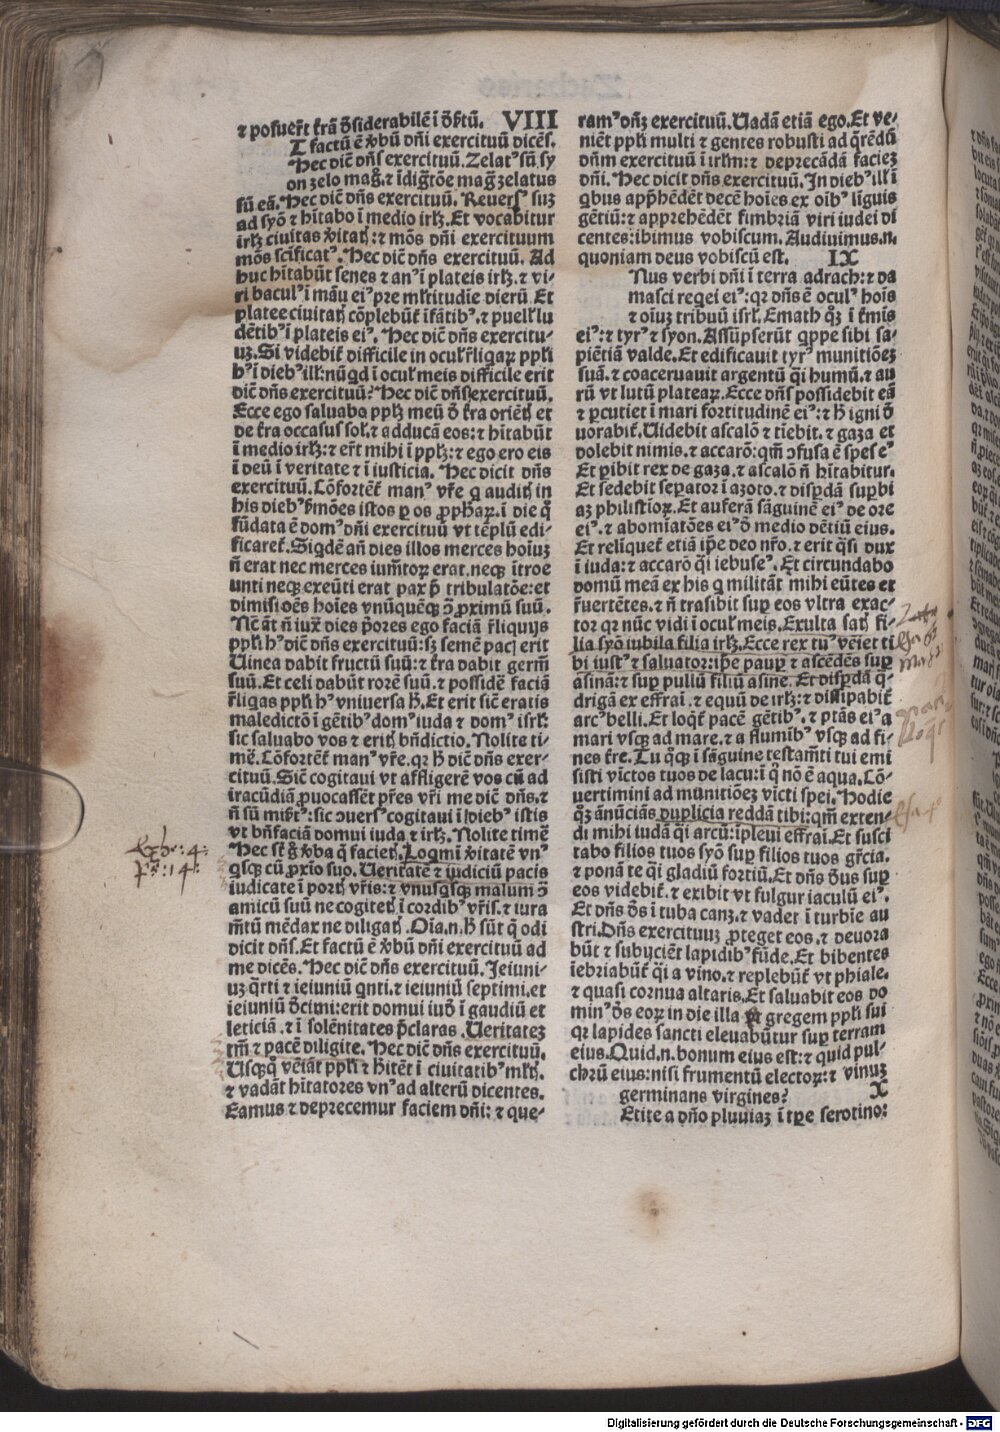 ⁊ posuer̄t t̄rā d̄siderabilē ī d̄s̄tū. VIII
T factū ē v̄bū dn̄i exercituū dicēs.
Hec dic̄ dn̄s exercituū. Zelatꝰ sū sy
on zelo mag̃. ⁊ īdig̃tōe mag̃ zelatus
sū eā. Hec dic̄ dn̄s exercituū. Reuersꝰ suꝫ
ad syō ⁊ hītabo ī medio irlꝫ. Et vocabitur
irlꝫ ciuitas v̄itatꝭ: ⁊ mōs dn̄i exercituum
mōs scīficatꝰ. Hec dic̄ dn̄s exercituū. Ad
huc hītabūt senes ⁊ anꝰ ī plateis irlꝫ. ⁊ vi⸗
ri baculꝰ ī māu eiꝰ pre ml̄titudīe dierū. Et
platee ciuitatꝭ cōplebūt̄ īfātibꝰ. ⁊ puellꝭ lu
dētibꝰ ī plateis eiꝰ. Hec dic̄ dn̄s exercitu⸗
uꝫ. Si videbit̄ difficile in oculꝭ r̄liqaꝝ pplꝭ
hꝰ ī diebꝰ illꝭ: nūqd ī oculꝭ meis difficile erit
dic̄ dn̄s exercituū? Hec dic̄ dn̄s exercituū.
Ecce ego saluabo pplꝫ meū d̄ t̄ra oriētꝭ et
de t̄ra occasus solꝭ. ⁊ adducā eos: ⁊ hītabūt
ī medio irlꝫ: ⁊ er̄t mihi ī pplꝫ: ⁊ ego ero eis
ī deū ī veritate ⁊ ī iusticia. Hec dicit dn̄s
exercituū. Cōfortēt̄ manꝰ vr̄e q auditꝭ in
his diebꝰ s̄mōes istos ꝑ os ꝓphaꝝ. ī die q̄
fūdata ē domꝰ dn̄i exercituū vt tēplū edi⸗
ficaret̄. Siqdē an̄ dies illos merces hoīuꝫ
n̄ erat nec merces iumt̄oꝝ erat. neqꝫ ītroe
unti neqꝫ exeūti erat pax p̄ tribulatōe: et
dimisi oēs hoīes vnūquēqꝫ ɔ̄ ꝓximū suū.
Nūc āt n̄ iuxͣ dies p̄ores ego faciā r̄liquijs
pplꝭ hꝰ dic̄ dn̄s exercituū: sꝫ semē pacꝭ erit
Uinea dabit fructū suū: ⁊ t̄ra dabit germē
suū. Et celi dabūt rorē suū. ⁊ possidē faciā
r̄liqas pplꝭ hꝰ vniuersa h̄. Et erit sic̄ eratis
maledictō ī gētibꝰ domꝰ iuda ⁊ domꝰ isrl̄:
sic saluabo vos ⁊ eritꝭ bn̄dictio. Nolite ti⸗
mē. Cōfortēt̄ manꝰ vr̄e. qꝛ h̄ dic̄ dn̄s exer⸗
cituū. Sic̄ cogitaui vt affligerē vos cū ad
iracūdiā ꝓuocassēt pr̄es vr̄i me dic̄ dn̄s. ⁊
n̄ sū mis̄tꝰ: sic ɔuersꝰ cogitaui ī diebꝰ istis
vt bn̄faciā domui iuda ⁊ irlꝫ. Nolite timē
Hec st̄ g̊ v̄ba q̄ facietꝭ. Loqmī v̄itatē vnꝰ
qsqꝫ cū ꝓxīo suo. Ueritatē ⁊ iudiciū pacis
iudicate ī portꝭ vr̄is: ⁊ vnusqsqꝫ malum ɔ̄
amicū suū ne cogitetꝭ ī cordibꝰ vr̄is. ⁊ iura
mt̄ū mēdax ne diligatꝭ. Oīa.n.h̄ sūt q̄ odi
dicit dn̄s. Et factū ē v̄bū dn̄i exercituū ad
me dicēs. Hec dic̄ dn̄s exercituū. Jeiuni⸗
uꝫ q̄rti ⁊ ieiuniū qnti. ⁊ ieiuniū septimi. et
ieiuniū d̄cimi: erit domui iud̄ ī gaudiū et
leticiā. ⁊ ī solēnitates p̄claras. Ueritateꝫ
tm̄ ⁊ pacē diligite. Hec dic̄ dn̄s exercituū.
Usqꝫq̄ vēiāt pplꝭ ⁊ hītēt ī ciuitatibꝰ mltꝭ.
⁊ vadāt hītatores vnꝰ ad alterū dicentes.
Eamus ⁊ deprecemur faciem dn̄i: ⁊ que⸗
Ephe: 4:
ramꝰ dn̄ꝫ exercituū. Uadā etiā ego. Et ve⸗
niēt pplꝭ multi ⁊ gentes robusti ad q̄rēdū
dn̄m exercituū ī irlm̄: ⁊ deprecādā facieꝫ
dn̄i. Hec dicit dn̄s exercituū. In diebꝰ illꝭ ī
qbus appn̄hēdēt decē hoīes ex oībꝰ līguis
gētiū: ⁊ apprehēdēt fimbriā viri iudei di
centes: ibimus vobiscum. Audiuimus.n.
quoniam deus vobiscū est. IX
Nus verbi dn̄i ī terra adrach: ⁊ da
masci reqei eiꝰ: qꝛ dn̄s ē oculꝰ hoīs
⁊ oīuꝫ tribuū isrl̄. Emath qꝫ ī t̄mis
eiꝰ: ⁊ tyrꝰ ⁊ syon. Assūpserūt qppe sibi sa⸗
piētiā valde. Et edificauit tyrꝰ munitiōeꝫ
suā. ⁊ coaceruauit argentū q̄i humū. ⁊ au
rū vt lutū plateaꝝ. Ecce dn̄s possidebit eā
⁊ ꝑcutiet ī mari fortitudinē eiꝰ: ⁊ h̄ igni d̄
uorabit̄. Uidebit ascalō ⁊ tīebit. ⁊ gaza et
dolebit nimis. ⁊ accarō: qm̄ ɔfusa ē spes eꝰ
Et ꝑibit rex de gaza. ⁊ ascalō n̄ hītabitur.
Et sedebit seꝑator ī azoto. ⁊ disꝑdā suꝑbi
aꝫ philistioꝝ. Et auferā sāguinē eiꝰ de ore
eiꝰ. ⁊ abomīatōes eiꝰ d̄ medio dētiū eius.
Et relīquet̄ etiā ip̄e deo nr̄o. ⁊ erit q̄si dux
ī iuda: ⁊ accarō q̄i iebuseꝰ. Et circundabo
domū meā ex his q militāt mihi eūtes et
r̄uertētes. ⁊ n̄ trāsibit suꝑ eos vltra exac⸗
tor qꝛ nūc vidi ī oculꝭ meis. Exulta satꝭ fi⸗
lia syō iubila filia irlꝫ. Ecce rex tuꝰ vēiet ti
bi iustꝰ ⁊ saluator: ip̄e pauꝑ ⁊ ascēdēs suꝑ
asinā: ⁊ suꝑ pullū filiū asine. Et disꝑdā q̄⸗
drigā ex effrai. ⁊ equū de irlꝫ: ⁊ dissipabit̄
arcꝰ belli. Et loqt̄ pacē gētibꝰ. ⁊ ptās eiꝰ a
mari vsqꝫ ad mare. ⁊ a flumībꝰ vsqꝫ ad fi⸗
nes t̄re. Tu qͦqꝫ ī sāguine testamt̄i tui emi
sisti victos tuos de lacu: ī q̊ nō ē aqua. Cō⸗
uertimini ad munitiōeꝫ victi spei. Hodie
qꝫ ānūciās duplicia reddā tibi: qm̄ exten⸗
di mihi iudā q̄i arcū: īpleui effrai. Et susci
tabo filios tuos syō suꝑ filios tuos gr̄cia.
⁊ ponā te q̄i gladiū fortiū. Et dn̄s d̄us suꝑ
eos videbit̄. ⁊ exibit vt fulgur iaculū eiꝰ.
Et dn̄s d̄s ī tuba canꝫ. ⁊ vadet ī turbīe au
stri. Dn̄s exercituuꝫ ꝓteget eos. ⁊ deuora
būt ⁊ subijciēt lapidibꝰ fūde. Et bibentes
īebriabūt̄ q̄i a vino. ⁊ replebūt̄ vt phiale.
⁊ quasi cornua altaris. Et saluabit eos do
minꝰ d̄s eoꝝ in die illa vt gregem pplꝭ sui
qꝛ lapides sancti eleuabūtur suꝑ terram
eius. Quid.n.bonum eius est: ⁊ quid pul⸗
chrū eius: nisi frumentū electoꝝ: ⁊ vinuꝫ
germinans virgines? X
Etite a dn̄o pluuiaꝫ ī tꝑe serotino:
Digitalisierung gefördert durch die Deutsche Forschungsgemeinschaft - DFG